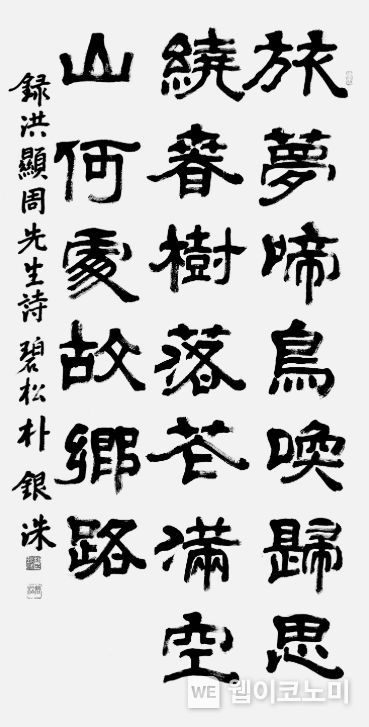 旅夢啼鳥喚歸思
繞春樹落花滿空
山何處故鄉路
録洪顯周先生詩 碧松 朴銀洙
WE 웹이코노미